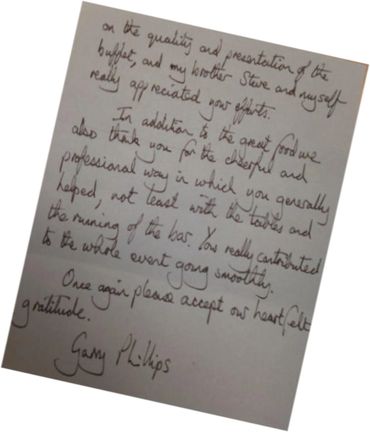 on the quality and presentation of the
buffet, and my brother Steve and myself
really appreciated your efforts.
In addition to the great food we
also thank you for the cheerful and
professional way in which you generally
helped, not least with the tables and
the running of the bar. You really contributed
to the whole event going smoothly.
Once again please accept our heartfelt
gratitude.
Garry Phillips